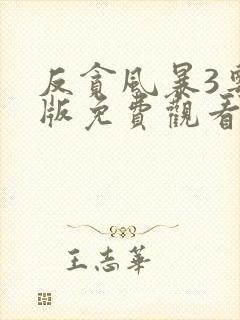 反貪風暴3粵
版免費觀看
王志華